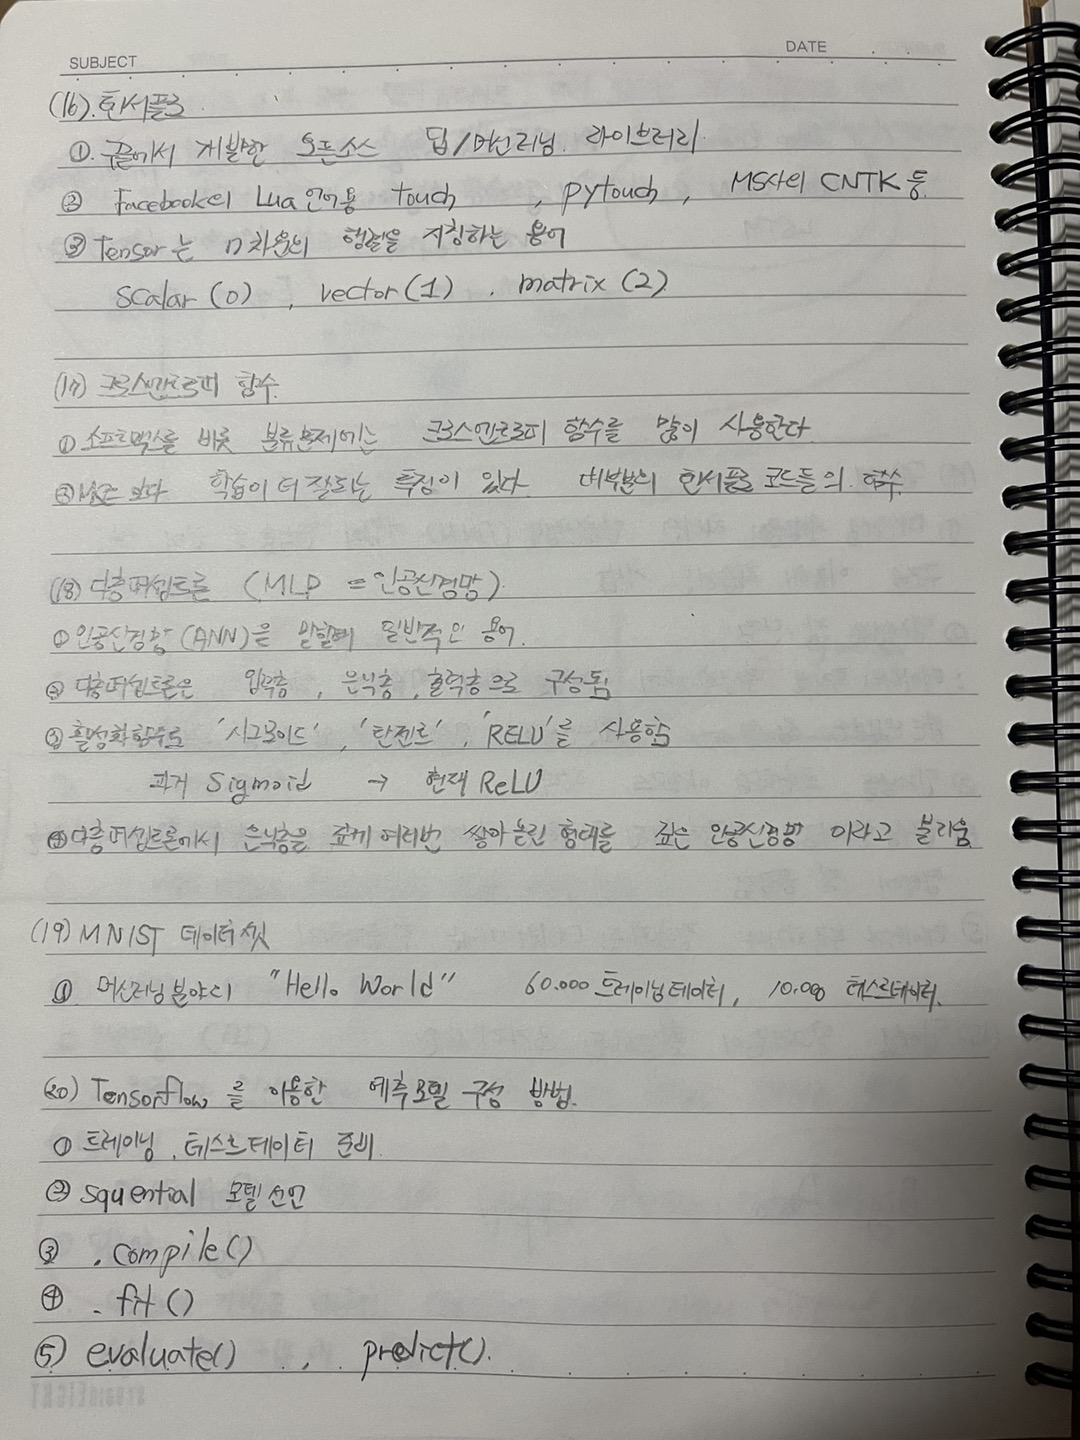 SUBJECT
DATE
(16). 텐서플로
①. 구글에서 개발한 오픈소스 딥/머신러닝. 라이브러리.
② Facebook의 Lua언어용 touch , pytouch , MS사의 CNTK 등.
③ Tensor는 n차원의 행렬을 지칭하는 용어
scalar (0) , vector (1) . matrix (2)
(17) 크로스엔트로피 함수.
① 소프트맥스를 비롯 분류문제에는 크로스엔트로피 함수를 많이 사용한다.
② MSE 보다 학습이 더 잘되는 특징이 있다. 대부분의 텐서플로 코드들의 함수.
(18) 다층퍼셉트론 (MLP = 인공신경망)
① 인공신경망(ANN)을 말할때 일반적인 용어.
② 다층퍼셉트론은 입력층 , 은닉층 , 출력층으로 구성됨
③ 활성화함수로 '시그모이드' , '탄젠트' , 'RELU'를 사용함
과거 Sigmoid → 현재 ReLU
④ 다층퍼셉트론에서 은닉층을 깊게 여러번 쌓아올린 형태를 깊은 인공신경망 이라고 불리움.
(19) MNIST 데이터셋
① 머신러닝분야의 "Hello World" 60.000 트레이닝데이터, 10.000 테스트데이터.
(20) Tensorflow 를 이용한 예측모델 구성 방법.
① 트레이닝 . 테스트데이터 준비.
② squential 모델선언
③ . compile()
④ . fit ()
⑤ evaluate() , predict().